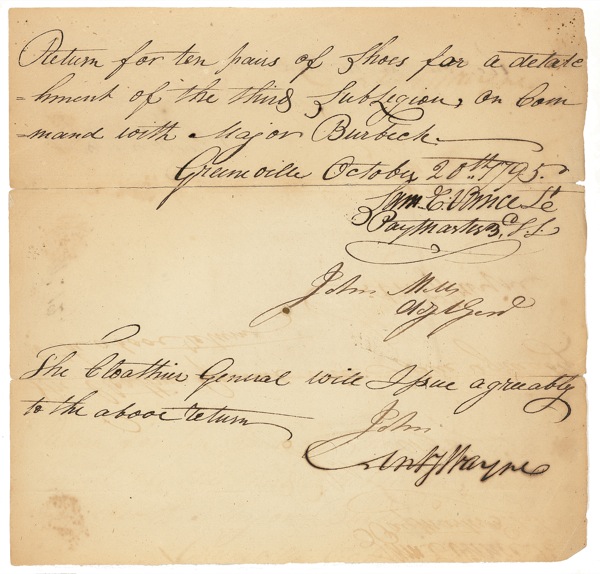 Return for ten pairs of Shoes for a detatc
=hment of the third SubLegion, on Com
=mand with Major Burbeck.
Greenville October 20th. 1795.
Sam C Vance Lt
PayMaster 3.d S L
John Mills
Adjt Genl
The Cloathier General will Issue agreeably
to the above return
John
Anty Wayne